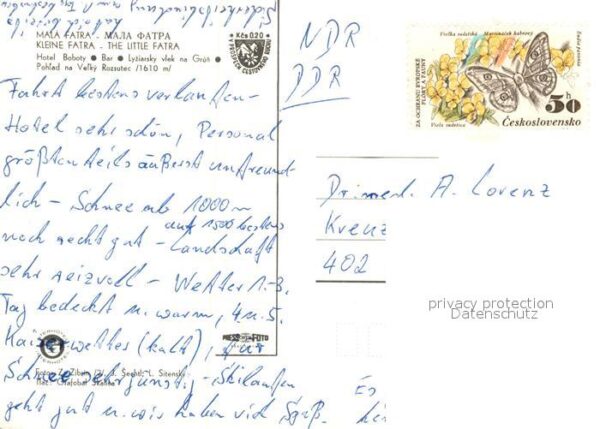 MALÁ FATRA - МАЛА ФАТРА
KLEINE FATRA - THE LITTLE FATRA
Hotel Boboty ● Bar ● Lyžiarsky vlek na Grúň ●
Pohľad na Veľký Rozsutec /1610 m/
Kčs 0,20
V PROSPECH CESTOVNÉHO RUCHU
Fahrt bestens verlaufen -
Hotel sehr schön, Personal
größtenteils äußerst unfreund-
lich - Schnee ab 1000 m
auf 1500 bestens
noch recht gut - Landschaft
sehr reizvoll - Wetter 1.-3.
Tag bedeckt u. warm, 4. u. 5.
Kaiserwetter (kalt), für
Schnee sehr günstig - Skilaufen
geht gut u. wir haben viel Spaß.
PRESSFOTO
Foto: Z. Zibrín /2/, J. Šechtl, L. Sitenský
Tlač: Grafobal Skalica
NDR
DDR
ZA OCHRANU EVROPSKÉ
FLÓRY A FAUNY
Violka sudetská
Martináček habrový
Viola sudetica
Eudia pavonia
50 h
Československo
Dr. med. A. Lorenz
Kreuz
402
privacy protection
Datenschutz
Es